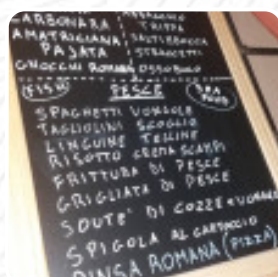 CARBONARA
AMATRICIANA
PAJATA
GNOCCHI ROMANA
ABBACCHIO
TRIPPA
SALTIMBOCCA
STRACCETTI
OSSOBUCO
FISH
PESCE
SEA FOOD
SPAGHETTI VONGOLE
TAGLIOLINI SCOGLIO
LINGUINE TELLINE
RISOTTO CREMA SCAMPI
FRITTURA DI PESCE
GRIGLIATA DI PESCE
SOUTE' DI COZZE E VONGOLE
SPIGOLA AL CARTOCCIO
PINSA ROMANA (PIZZA)